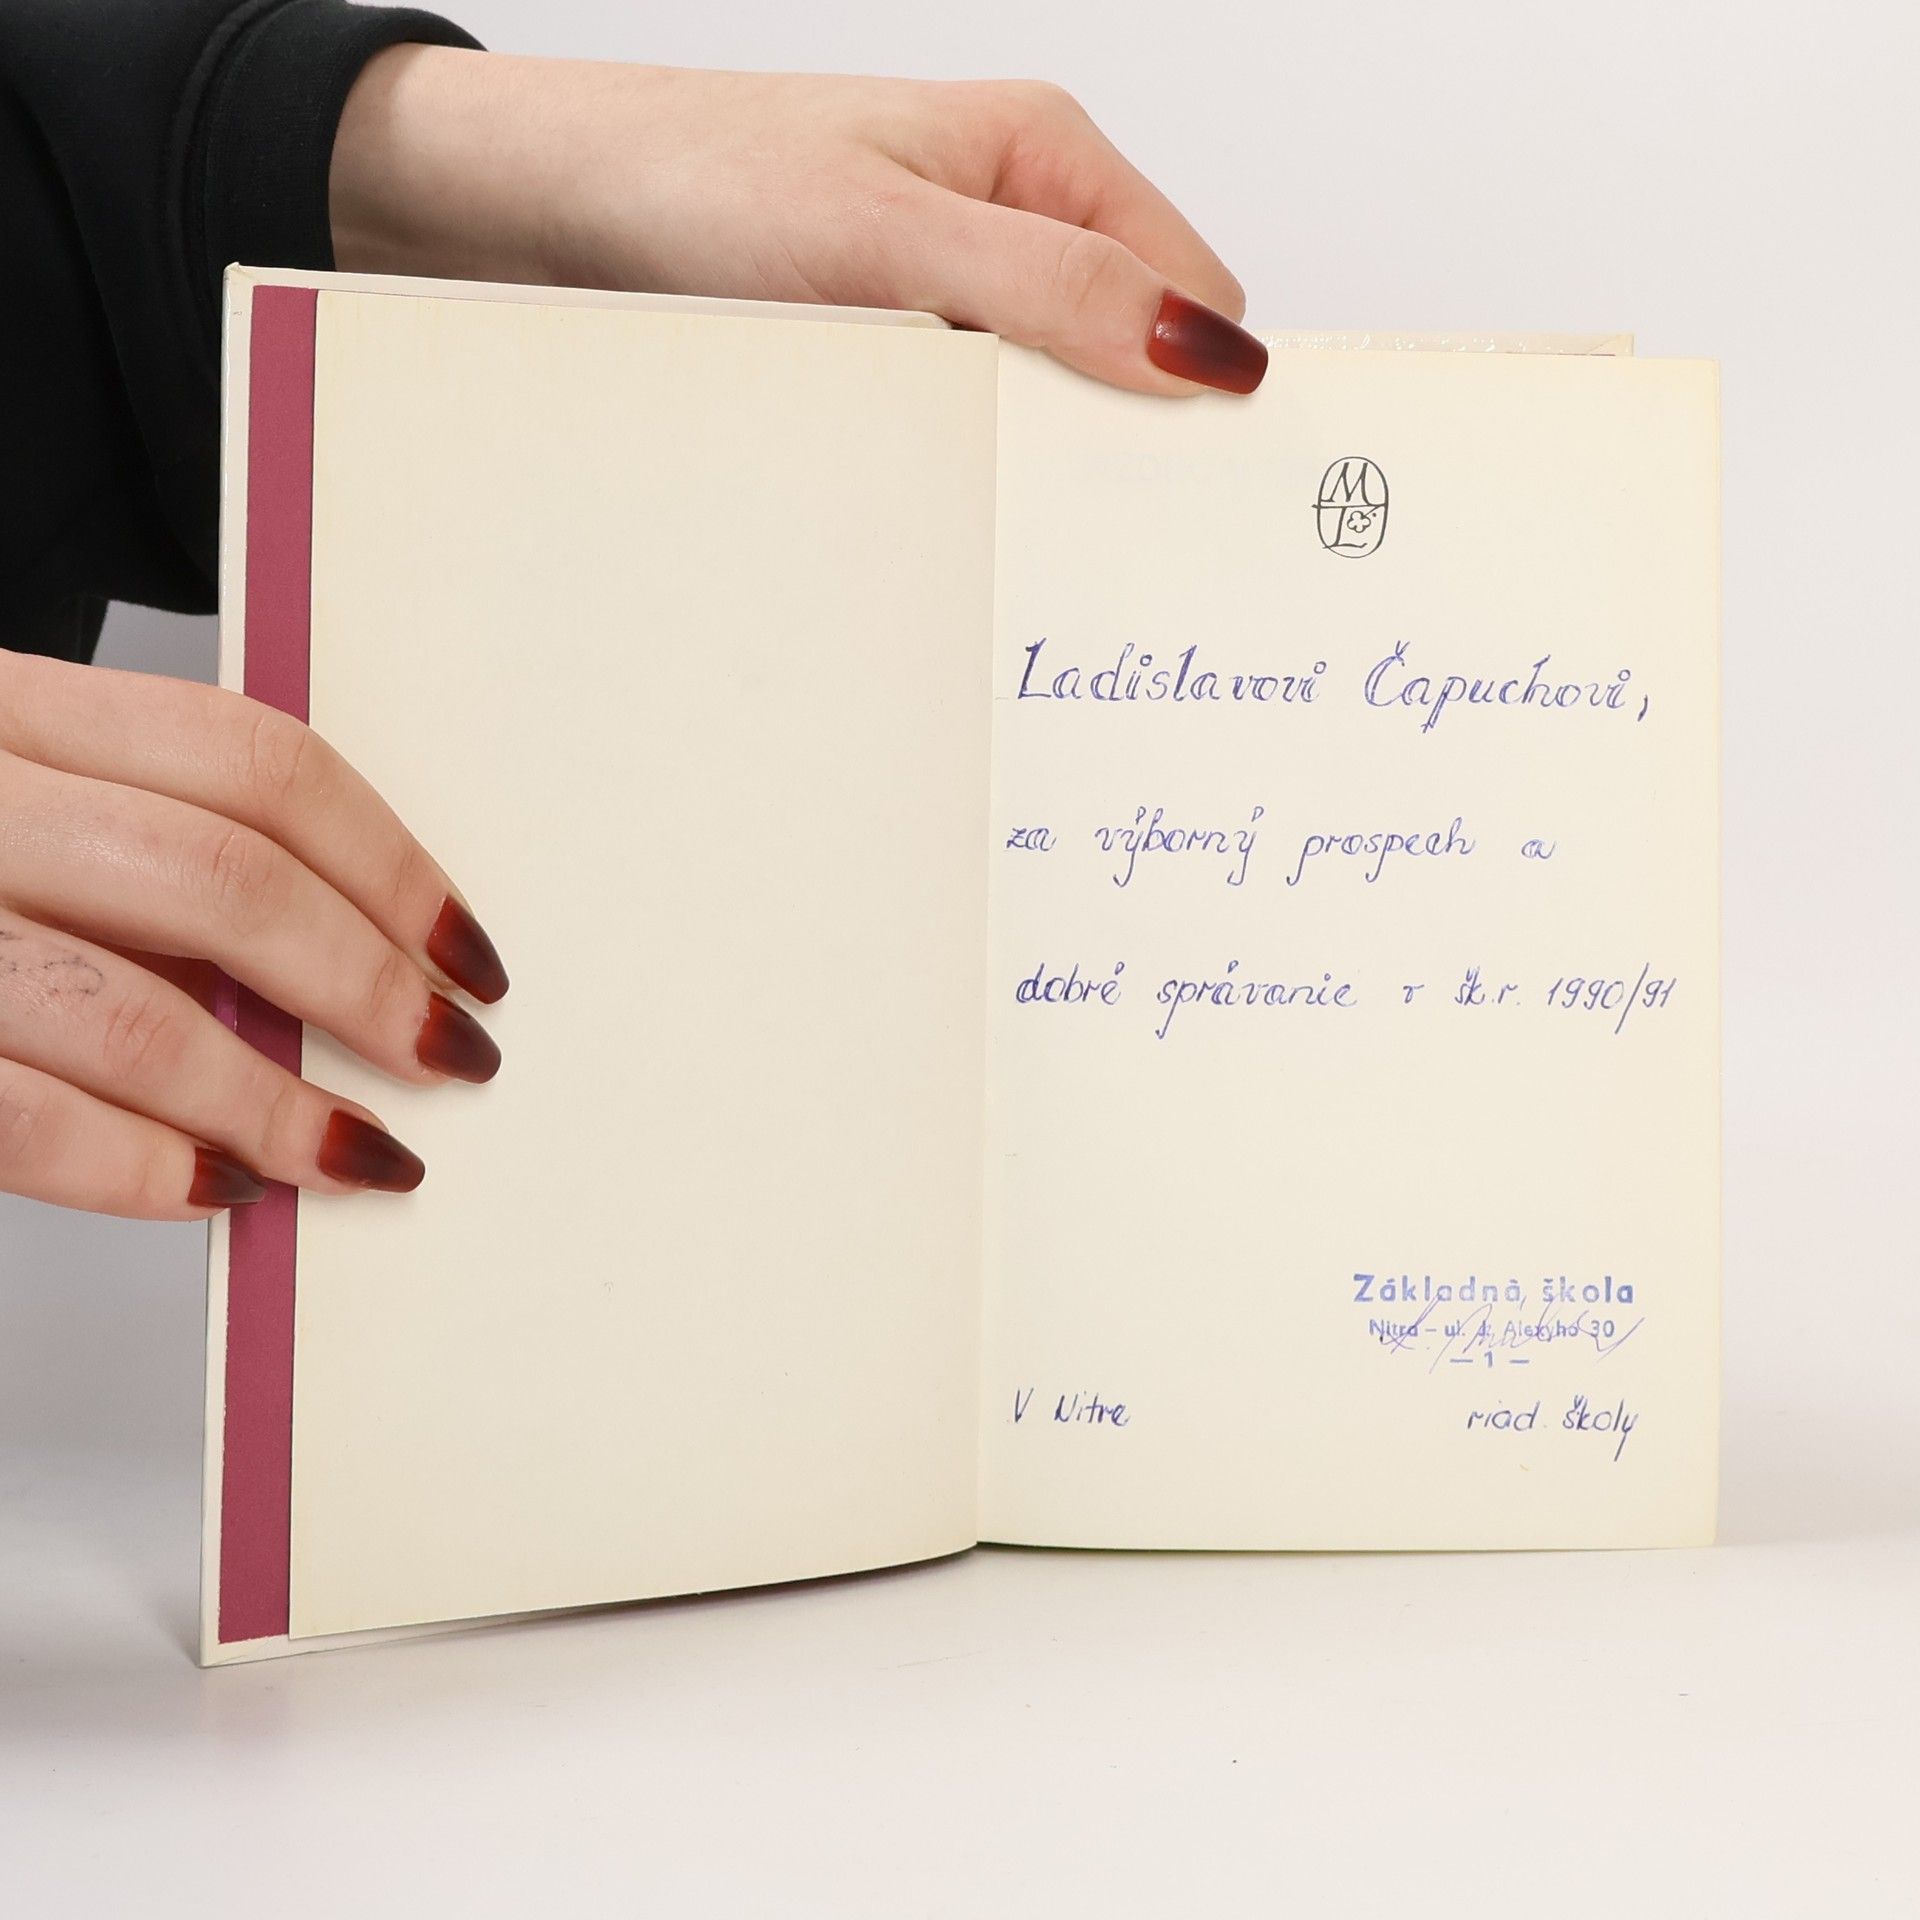 ML
Ladislavovi Čapuchovi,
za výborný prospech a
dobré správanie v šk.r. 1990/91
Základná škola
Nitra – ul. J. Alexyho 30
— 1 —
V Nitre
riad. školy